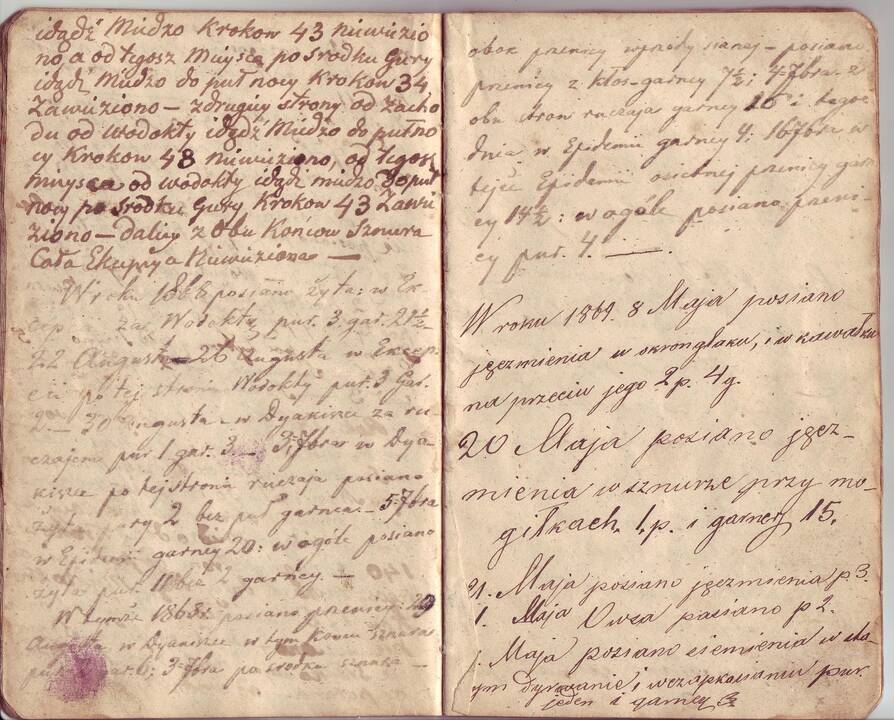 idądź Miidzo Krokow 43 niiwiizio
no, a od tegosz Miiysca po srodku Gury
idądź Miidzo do puł nocy Krokow 34
Zawiiziono — zdruguy strony od Zacho
du od wodokty idądź Miidzo do pułno
cy Krokow 48 niiwiiziono, od tegosz
miiysca od wodokty idądź miidzo do puł
nocy po srodku Gury Krokow 43 Zawii
ziono — daliy z Obu Końcow Sznura
Cała Niiwiiziona —
W roku posiano żyta: w Ex
za Wodokty pur. 3. gar. 21½
22 Augusta — 26 Augusta w Excep
po tej stronie Wodokty pur. 3 Gar.
2. — 30 Augusta w Dyakisce za ru
czajem pur 1 gar. 3. — 3. 7bra w Dya
kisce po tej stronie ruczaja posiano
żyta 2 bez puł garnca. — 5. 7bra
w Epidemii garncy 20: w ogóle posiano
żyta pur. 11 bez 2 garncy. —
W tymże posiano przenicy: 29
Augusta w Dyakisce w tym końcu sznura
gar. 6; 3-7bra po srodku sznura —
obok przenicy wprzody sianej — posiano
przenicy z kłos-garncy 7½; 4-7bra z
obu stron ruczaja garncy i tegoż
dnia w Epidemii garncy 4; 16 7bra w
tejże Epidemii osietnej przenicy garn
cy 14½: w ogóle posiano przeni-
cy pur. 4. —
W roku 1869. 8 Maja posiano
jęczmienia w okronglaku, i w kawałku
na przeciw jego 2 p. 4 g.
20 Maja posiano jęcz-
mienia w sznurze przy mo-
giłkach. 1. p. i garncy 15.
21. Maja posiano jęczmienia p. 3.
1. Maja Owsa pasiano p 2.
Maja posiano siemienia w sta
rym dyrwanie i wzapkosianiu pur.
jeden i garncy 3